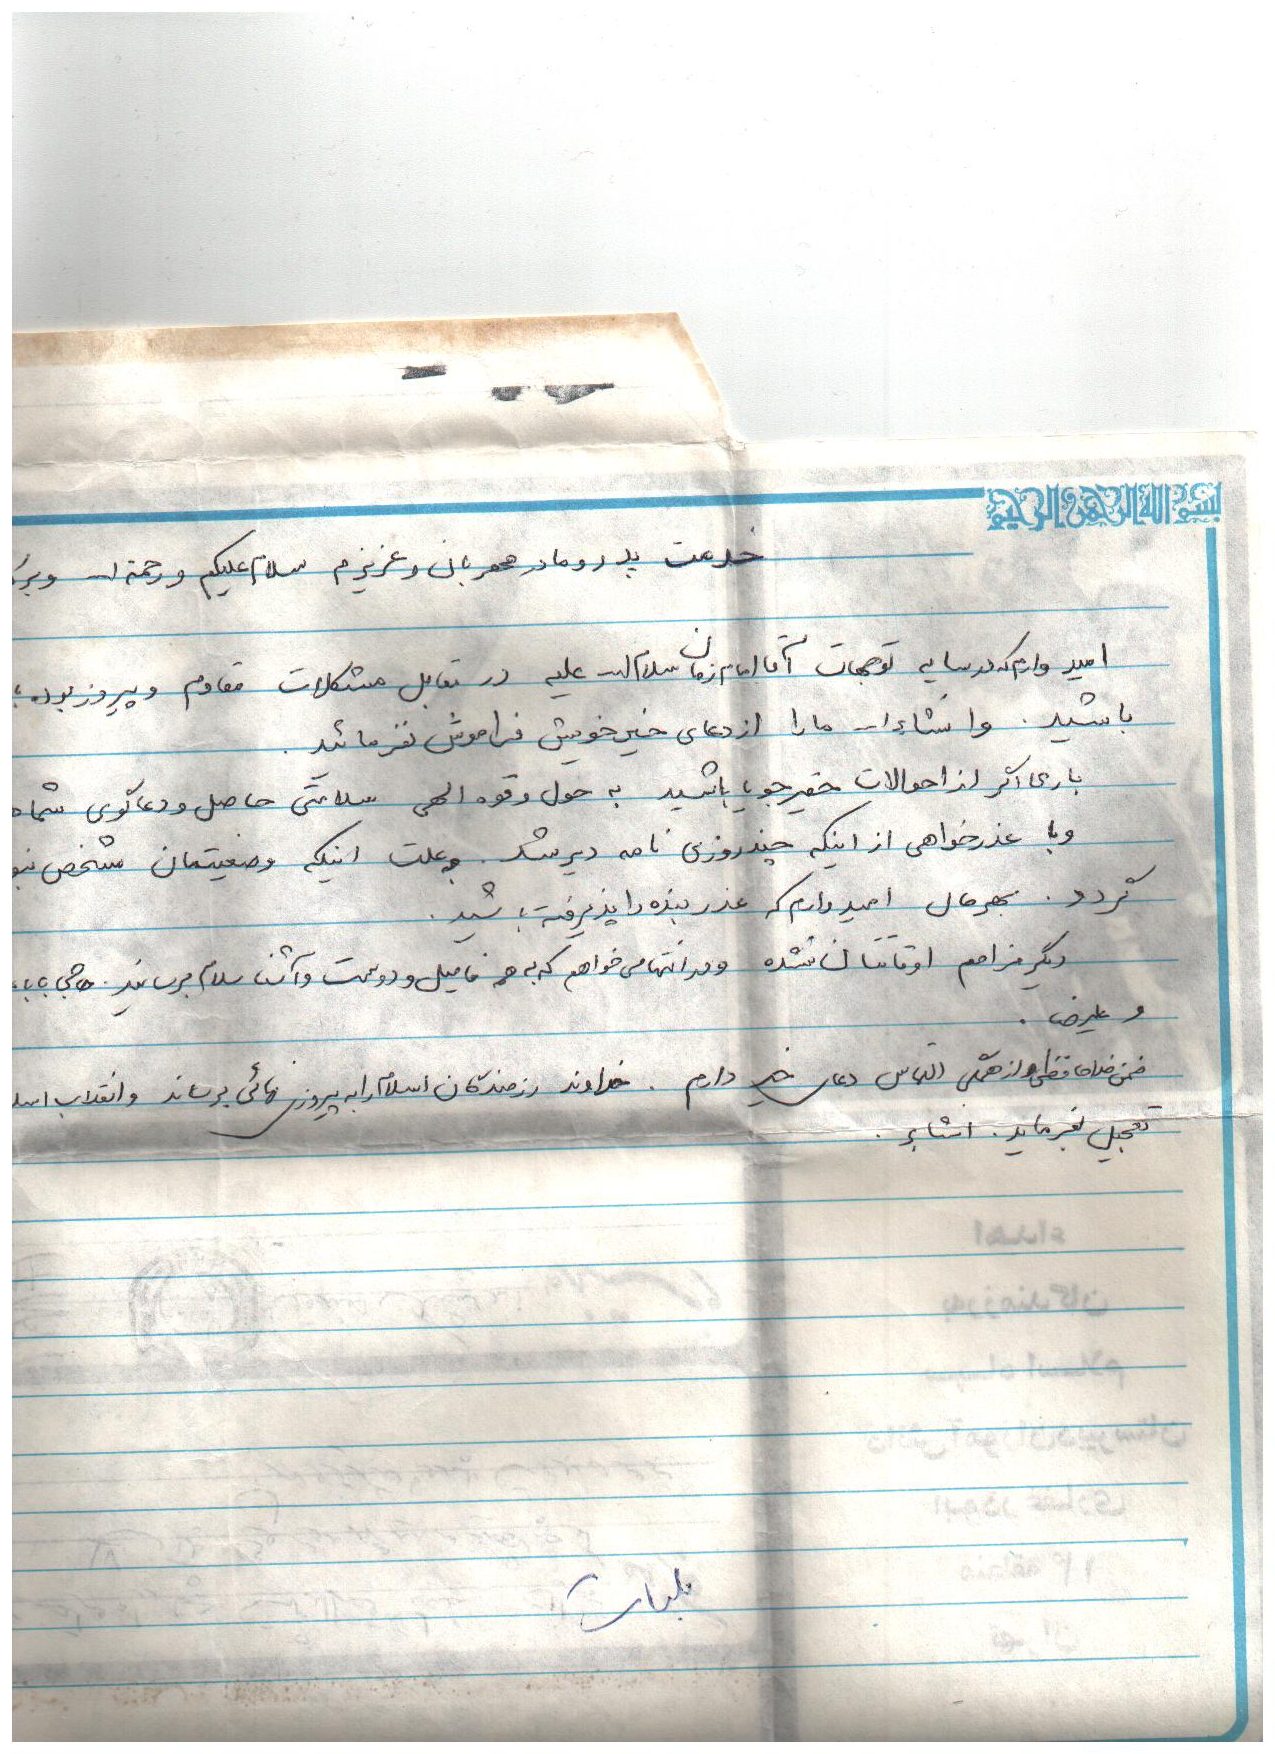 بسم الله الرحمن الرحیم
خدمت پدر و مادر مهربان و عزیزم سلام علیکم و رحمة ا... و برک
امیدوارم که در سایه توجهات آقا امام زمان سلام ا... علیه در تقابل مشکلات مقاوم و پیروز بوده
باشید. وانشاءا... ما را از دعای خیر خویش فراموش نفرمائید.
باری اگر از احوالات حقیر جویا باشید به حول و قوه الهی سلامتی حاصل و دعاگوی شما
و با عذرخواهی از اینکه چند روزی نامه دیر شد. بعلت اینکه وضعیتمان مشخص نبو
گردد. بهرحال امیدوارم که عذر بنده را پذیرفته باشید.
دیگر مزاحم اوقاتتان نشده و در انتها می‌خواهم که به همه فامیل و دوست و آشنا سلام برسانید. حاجی بابا
و علیرضا.
ضمن خداحافظی از همگی التماس دعای خیر دارم. خداوند رزمندگان اسلام را به پیروزی نهائی برساند و انقلاب اسلا
تعجیل بفرماید. انشاء
اهداء
به رزمندگان
سپاه اسلام
دانش آموزان دبیرستان
ابوذر غفاری
منطقه ۱۴
تهران